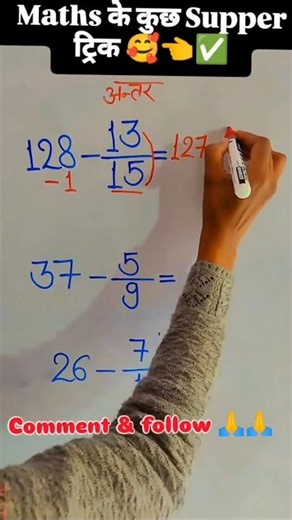 Maths के कुछ Supper
ट्रिक 🥰👈✅
अन्तर
128 - 13/15 = 127
-1
37 - 5/9 =
26 - 7/
Comment & follow 🙏🙏